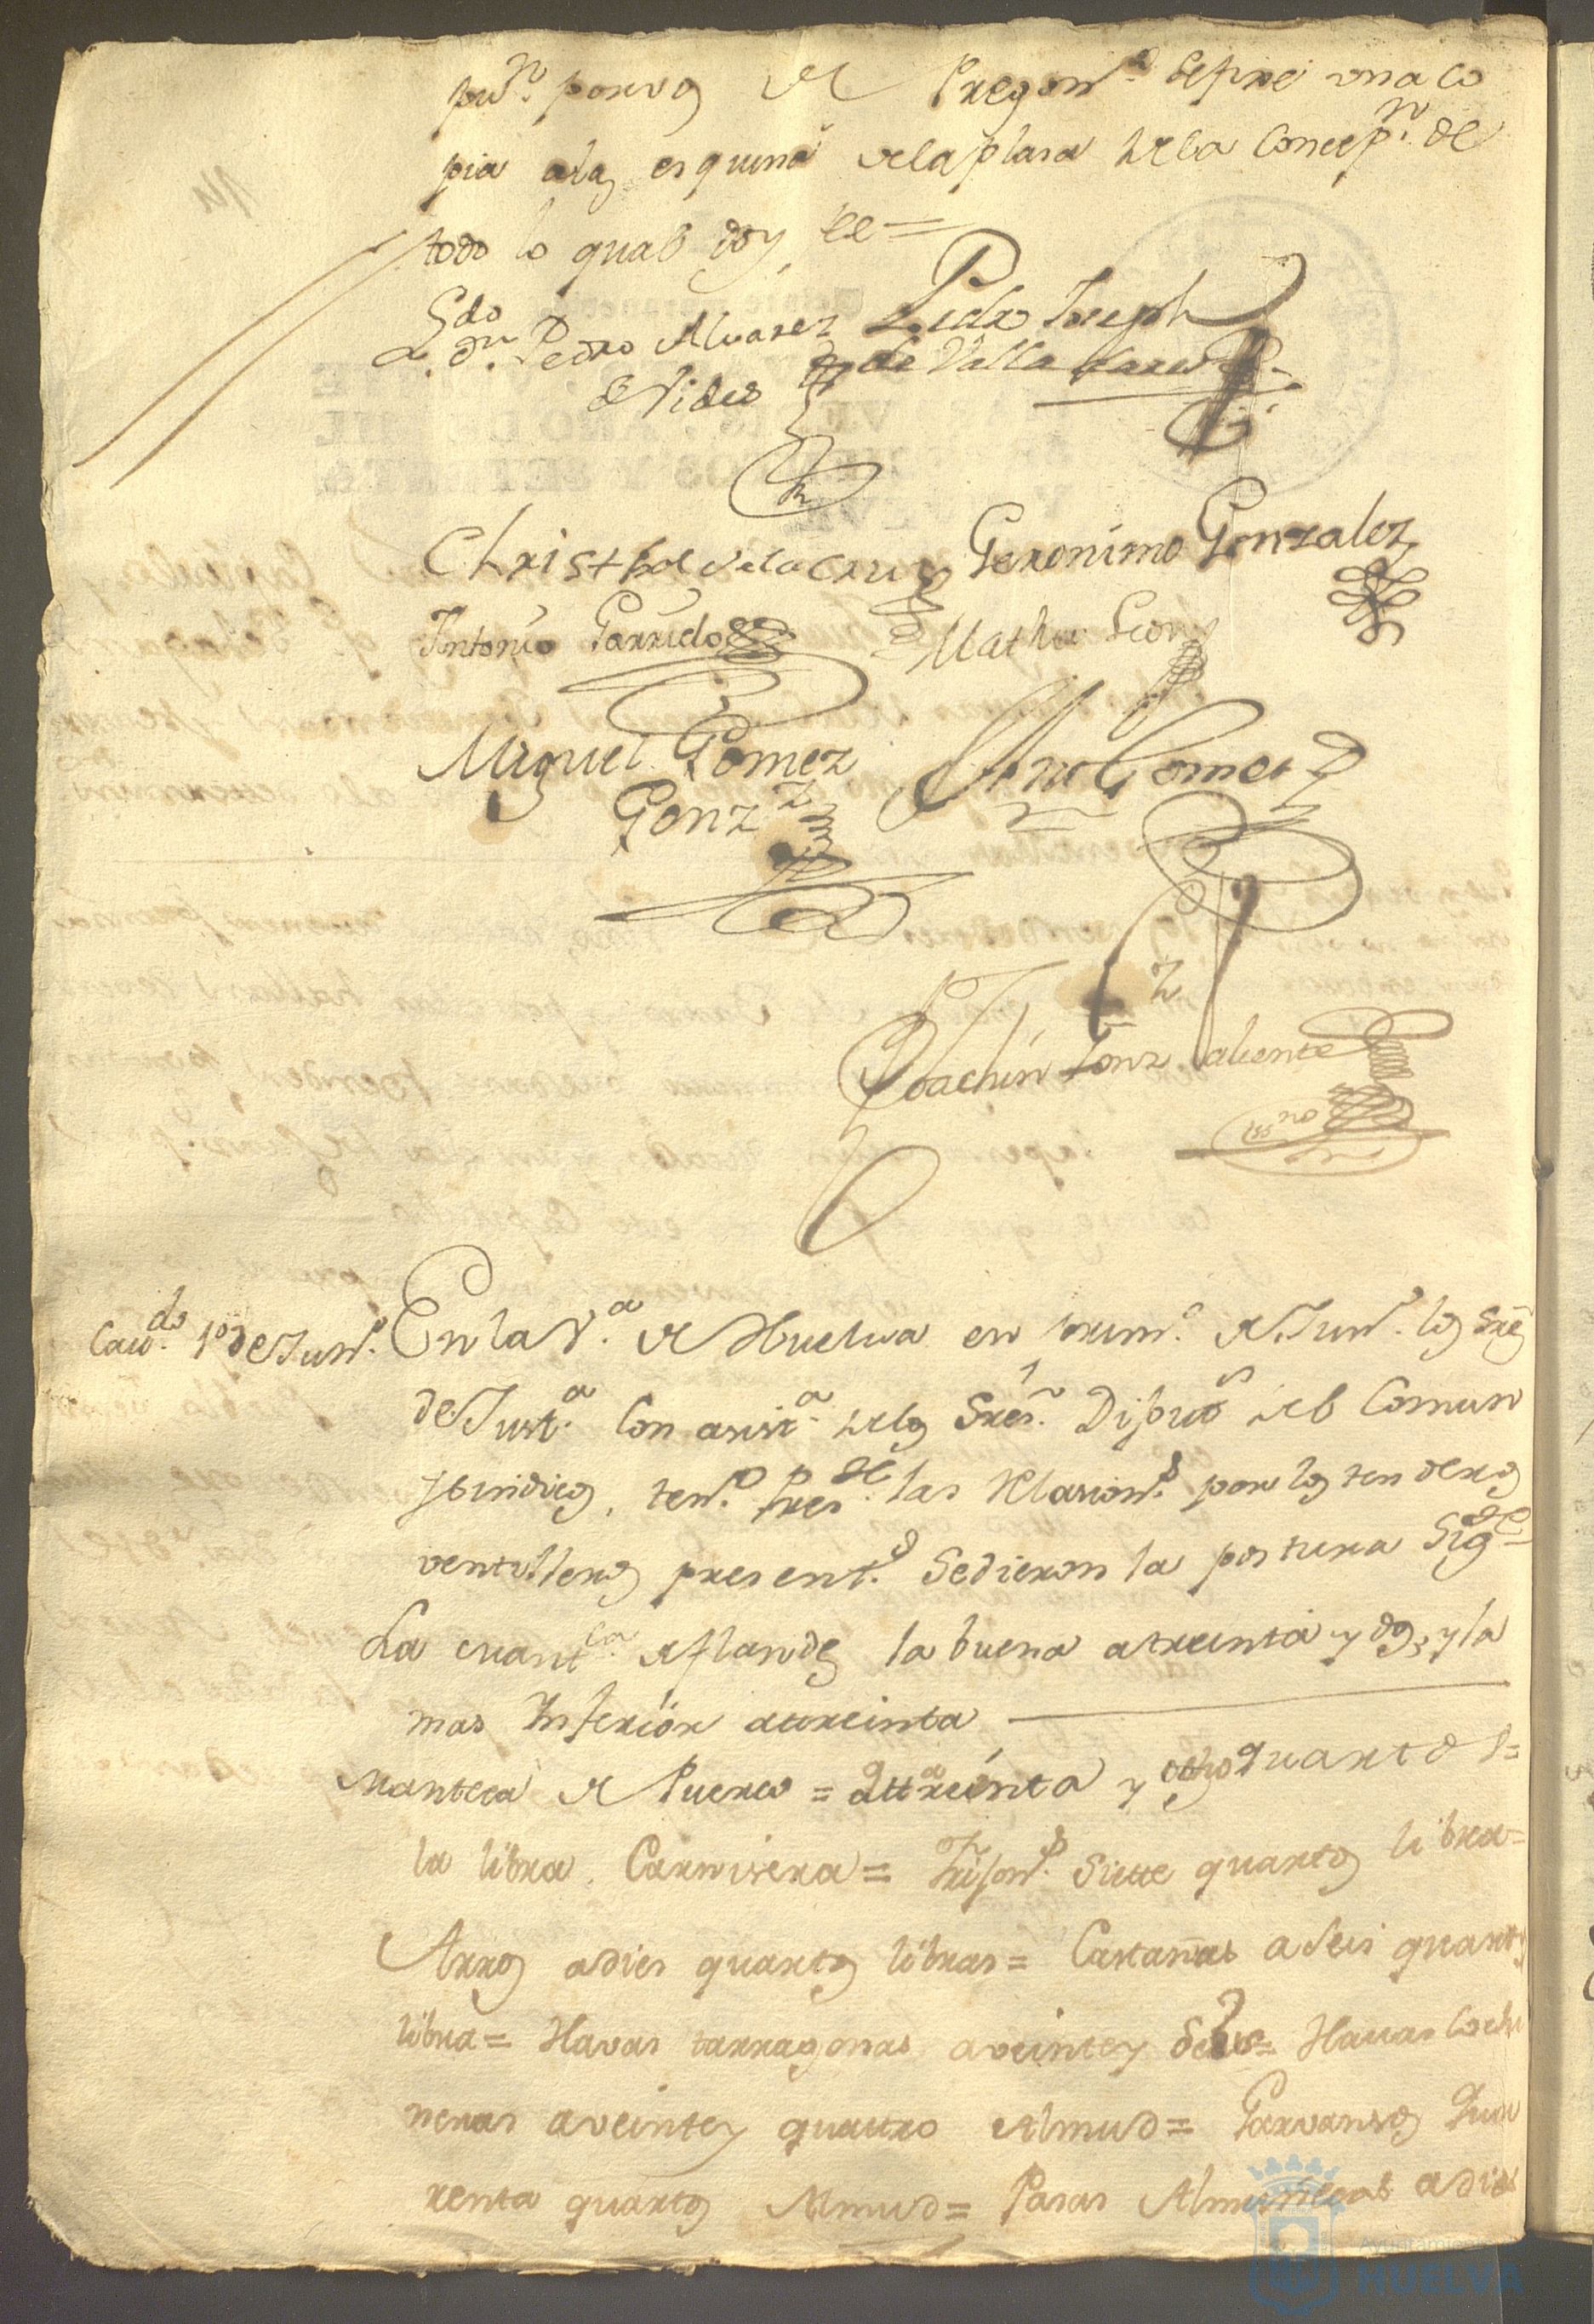 pu.n por vos de Pregon.o se fixó una co
pia a las esquina de la plasa de la Concep.n de
todo lo qual doy fee =
L.do D.n Pedro Alvarez Pedro Joseph
de Valladares
Christobal de la Cruz Geronimo Gonzalez
Antonio Garrido Matheo Leon
Miguel Gomez Gomez
Gonz.z
Joachin Gonz.z Valiente
ess.no
Cav.do 1.o de Jun.o En la V.a de Huelva en prim.o de Jun.o los Sres
de Just.a Con asist.a de los Sres. Diput.s del Comun
y Sindico, ten.do pres.te las Relacion.s por los tenderos
ventilleros present.s Se dieron la postura Sig.te
La cuant.la de flandes la buena a treinta y dos, y la
mas Inferior a treinta
Manteca de Puerco = a ttreinta y ocho quartos =
la libra Carnisera = Frison.s Siette quartos libra =
Arros a dies quartos libras = Castañas a Seis quartos
libra = Havas tarragonas a veinte y Seis = Havas cochi
neras a veinte y quattro Almud = Garvansos Qua
renta quartos Almud = Pasas Almuñecas a dies
Ayuntamiento
HUELVA